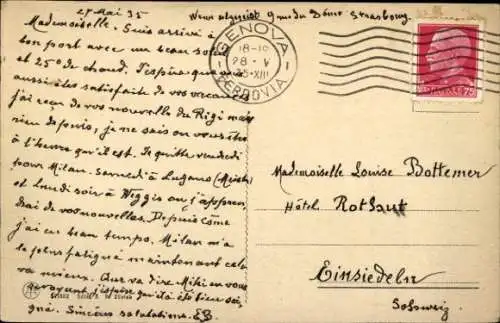 27 Mai 35
Wenn abgereist 9 rue du Dôme Strasbourg
Mademoiselle. Suis arrivé à
bon port avec un beau soleil
et 25° de chaud. J'espère que
aussi êtes satisfaite de vos vacances
j'ai reçu de vos nouvelles du Rigi mais
rien depuis, je ne sais ou vous êtes
à l'heure qu'il est. Je quitte vendredi
pour Milan. Samedi à Lugano
et Lundi soir à Weggis ou j'apprendrai
de vos nouvelles. Depuis Côme
j'ai eu beau temps. Milan m'a
le plus fatigué maintenant cela
va mieux. Que va dire Miki en vous
revoyant j'espère qu'il a été bien soigné.
Sincères salutations. EB
GENOVA
18-19
28 V
35-XIII
FERROVIA
75
Mademoiselle Louise Bottemer
Hôtel Rothut
Einsiedeln
Schweiz